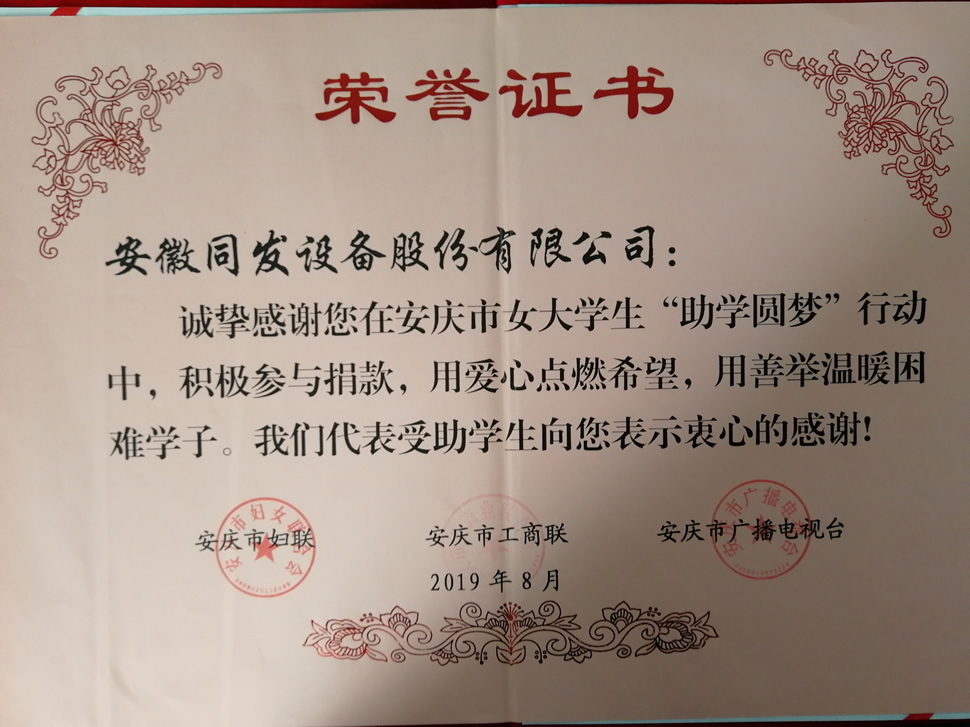 荣誉证书
安徽同发设备股份有限公司：
诚挚感谢您在安庆市女大学生“助学圆梦”行动
中，积极参与捐款，用爱心点燃希望，用善举温暖困
难学子。我们代表受助学生向您表示衷心的感谢!
安庆市妇联 安庆市工商联 安庆市广播电视台
2019 年 8 月